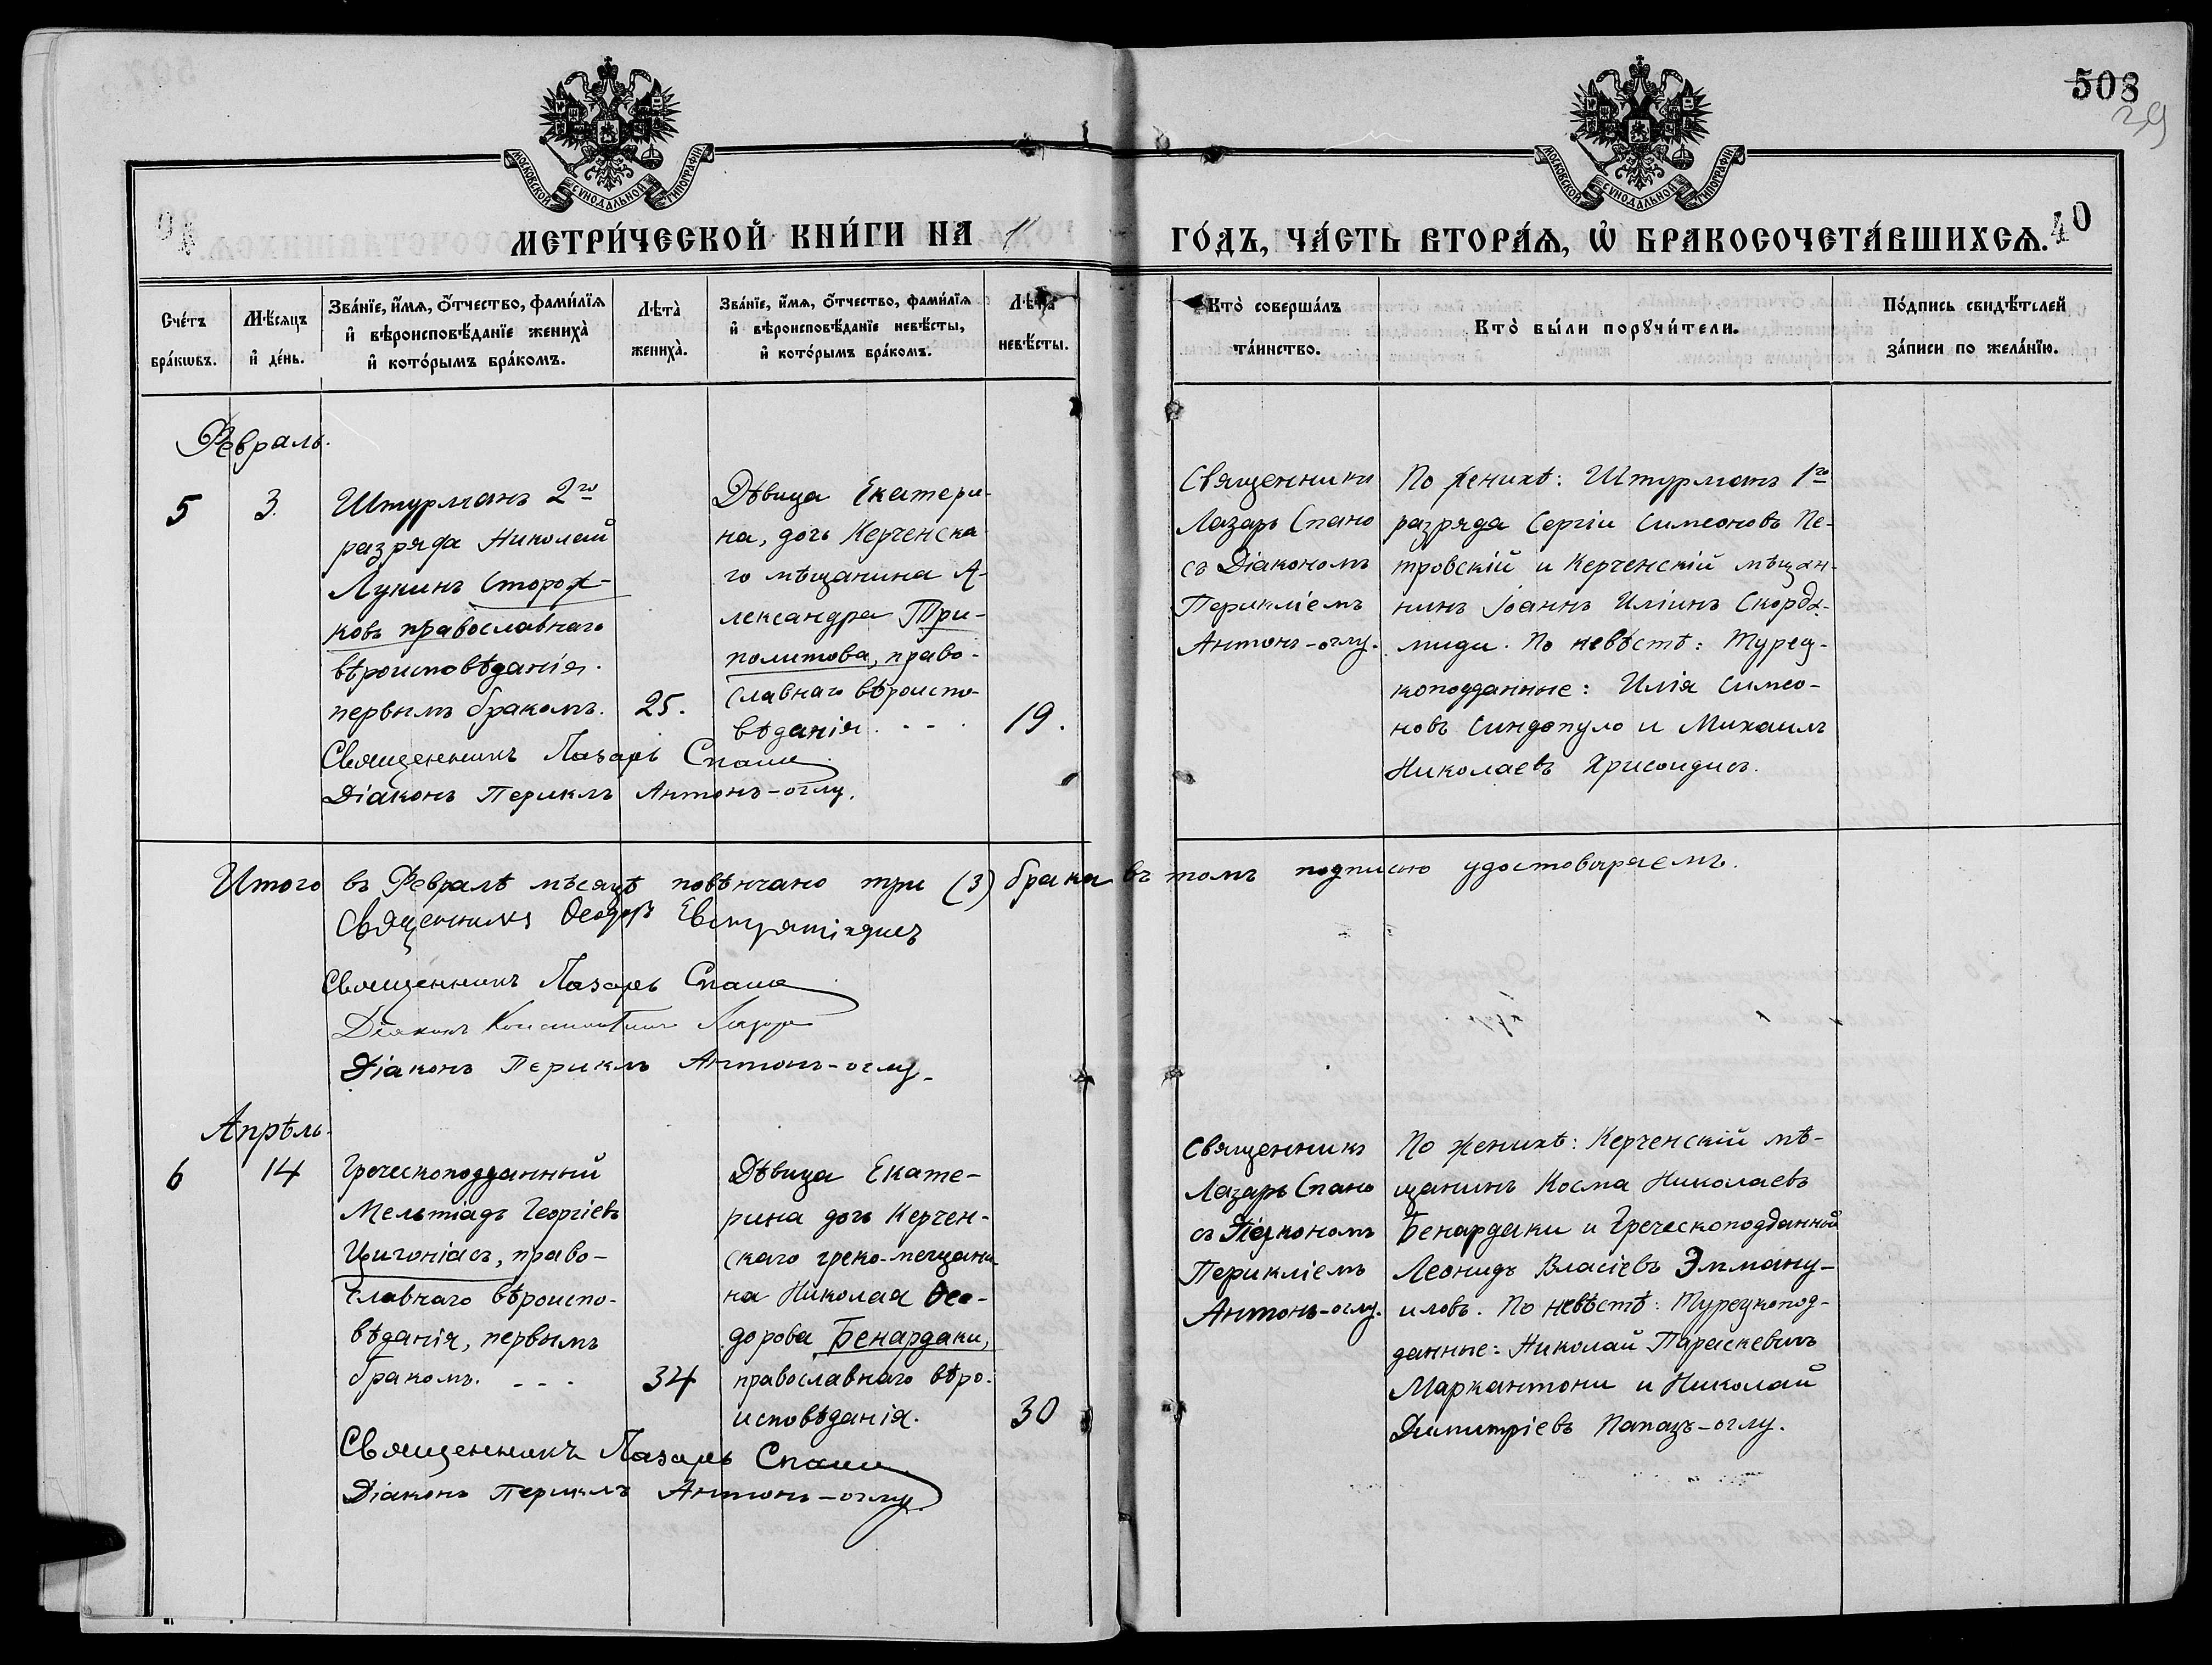 508
29
МОСКОВСКОЙ СУНОДАЛЬНОЙ ТИПОГРАФІИ
МОСКОВСКОЙ СУНОДАЛЬНОЙ ТИПОГРАФІИ
МЕТРИ́ЧЕСКОЙ КНИ́ГИ НА 11 ГО́ДЪ, ЧА́СТЬ ВТОРА́Ѧ, Ѡ҆ БРАКОСОЧЕТА́ВШИХСѦ.
40
Сче́тъ
бра́кѡвъ.
Мѣ́сяцъ
и҆ де́нь.
Зва́нїе, и҆́мѧ, ѻ҆́тчество, фами́лїѧ
и҆ вѣроисповѣ́данїе жениха̀
и҆ кото́рымъ бра́комъ.
Лѣта̀
жениха̀.
Зва́нїе, и҆́мѧ, ѻ҆́тчество, фами́лїѧ
и҆ вѣроисповѣ́данїе невѣ́сты,
и҆ кото́рымъ бра́комъ.
Лѣта̀
невѣ́сты.
Кто̀ соверша́лъ
та́инство.
Кто̀ бы́ли порꙋчи́тели.
По́дпись свидѣ́телей
за́писи по жела́нїю.
Февраль.
5
3.
Штурманъ 2го
разряда Николай
Лукинъ Сторож-
ковъ православнаго
вѣроисповѣданія.
первымъ бракомъ.
25.
Дѣвица Екатери-
на, дочь Керченска
го мѣщанина А-
лександра Три-
политова, право-
славнаго вѣроиспо-
вѣданія. - - .
19.
Священникъ Лазарь Спано
Діаконъ Периклъ Антонъ-оглу.
Священникъ
Лазарь Спано
съ Діакономъ
Перикліемъ
Антонъ-оглу.
По женихѣ: Штурманъ 1го
разряда Сергій Симеоновъ Пе-
тровскій и Керченскій мѣщан-
нинъ Іоаннъ Иліинъ Скорда-
миди. По невѣстѣ: Турец-
коподданные: Илія Симео-
новъ Синдопуло и Михаилъ
Николаевъ Хрисоидисъ.
Итого въ Февралѣ мѣсяцѣ повѣнчано три (3) брака въ томъ подписью удостовѣряемъ.
Священникъ Ѳеодоръ Евстратіадисъ
Священникъ Лазарь Спано
Діаконъ Константинъ
Діаконъ Периклъ Антонъ-оглу.
Апрѣль.
6
14
Греческоподданный
Мельтіадъ Георгіевъ
Цигоніасъ, право-
славнаго вѣроиспо-
вѣданія, первымъ
бракомъ. - - .
34
Дѣвица Екате-
рина дочь Керчен-
скаго греко-мещани-
на Николая Ѳео-
дорова Бенардаки,
православнаго вѣро-
исповѣданія.
30
Священникъ Лазарь Спано
Діаконъ Периклъ Антонъ-оглу.
Священникъ
Лазарь Спано
съ Діакономъ
Перикліемъ
Антонъ-оглу.
По женихѣ: Керченскій мѣ-
щанинъ Косма Николаевъ
Бенардаки и Греческоподданный
Леонидъ Власіевъ Эмману-
иловъ. По невѣстѣ: Турецкопод-
данные: Николай Параскевинъ
Маркантони и Николай
Димитріевъ Папазъ-оглу.